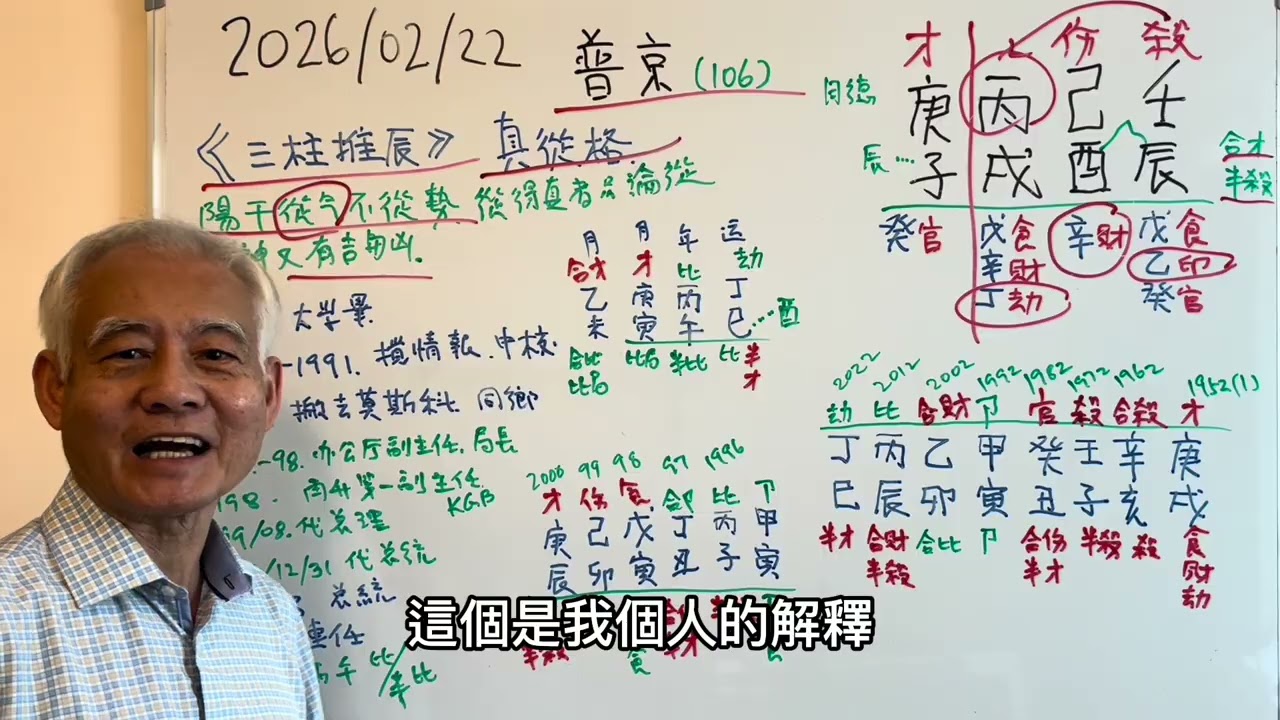 2026/02/22 普京(106)
《三柱推辰》 真從格
陽干從气不從勢 從得真者只論從
又有吉与凶.
大学畢
-1991. 搅情報.中校
搬去莫斯科 同鄉
-98.办公厅副主任.局长
98. 第一副主任 KGB
99/08.代总理
12/31 代总统
总统
連任
午 比/半比
才 卩 伤 殺
日德 庚 丙 己 壬
辰… 子 戌 酉 辰
合才
半殺
癸官 戊食 辛財 戊食
辛財 乙印
丁劫 癸官
月 月 年 运
合才 才 比 劫
乙 庚 丙 丁
未 寅 午 巳…酉
合比 比局 半比 比 半
比局 才
2022 2012 2002 1992 1982 1972 1962 1952(1)
劫 比 合財 卩 官 殺 合殺 才
丁 丙 乙 甲 癸 壬 辛 庚
巳 辰 卯 寅 丑 子 亥 戌
半才 合財 合比 卩 合伤 半殺 殺 食
半殺 半才 財
劫
2000 99 98 97 1996
才 伤 食 合卩 比 卩
庚 己 戊 丁 丙 甲
辰 卯 寅 丑 子 寅
半殺 食
這個是我個人的解釋